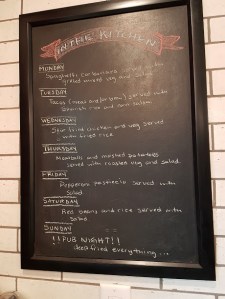 IN THE KITCHEN
MONDAY
Spaghetti carbonara served with
grilled mixed veg and salad
TUESDAY
Tacos served with
spanish rice and corn salsa
WEDNESDAY
Stir fried chicken and veg served
with fried rice
THURSDAY
Meatballs and mashed potatoes
served with roasted veg and salad.
FRIDAY
Pepperoni served with
Salad
SATURDAY
Red beans and rice served with
salad
SUNDAY
!!PUB NIGHT!!
deep fried everything...